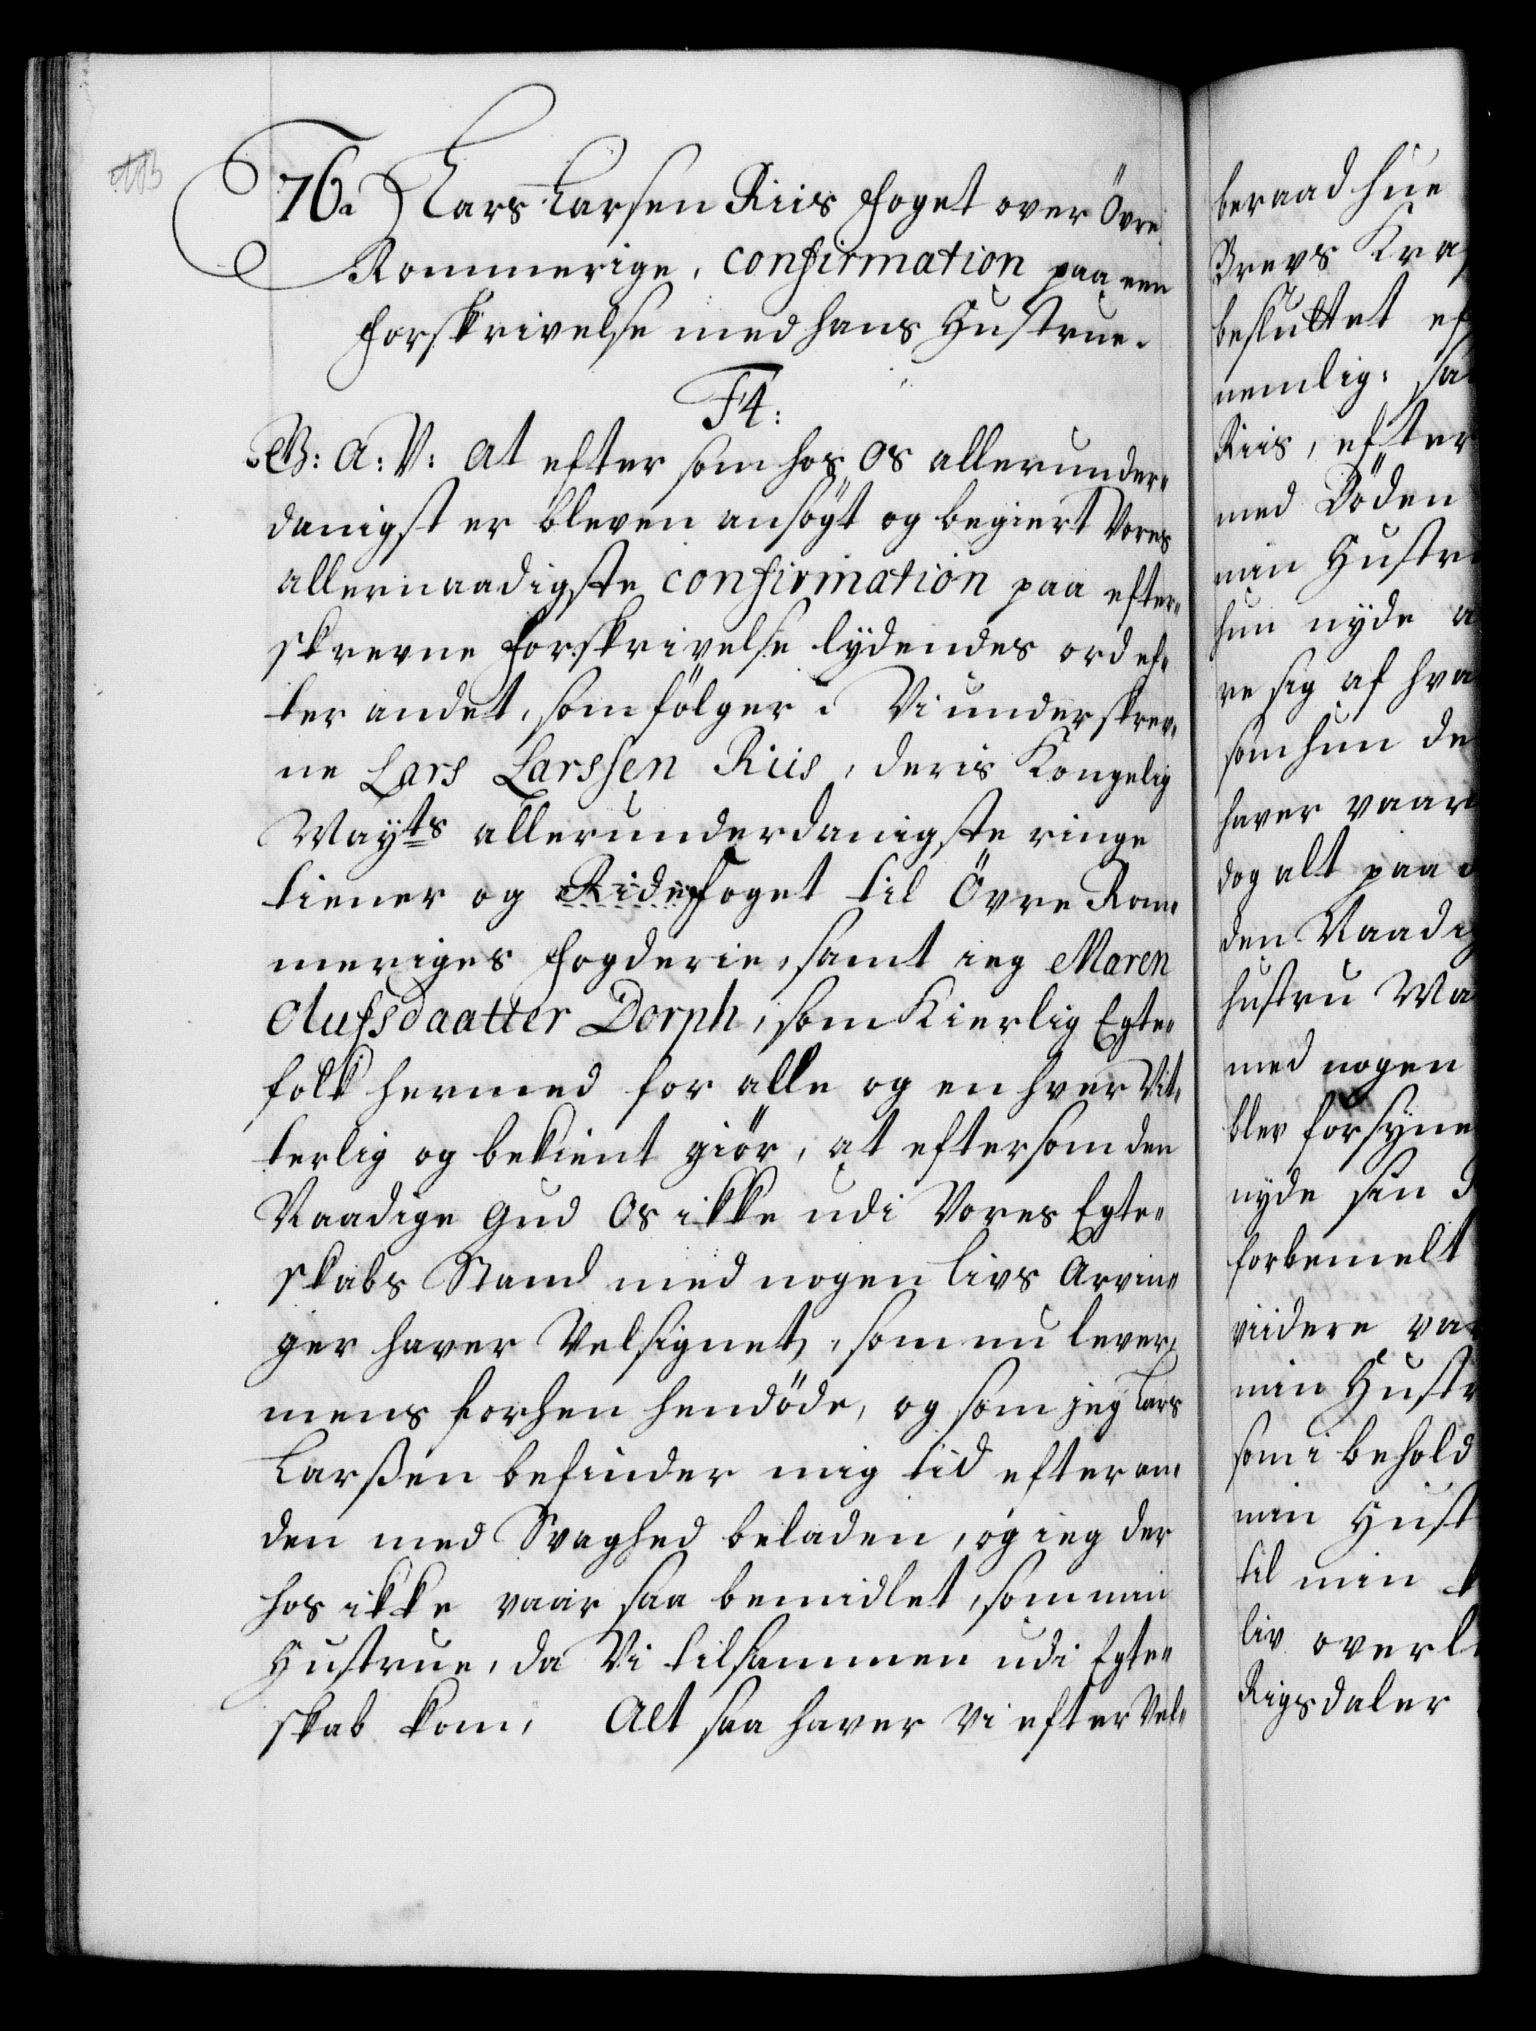 76. Lars Larsen Riis Foget over Övre
Rommerige, Confirmation paa een
Forskrivelse med hans Hustrue.
F4:
G: A: V: At efter som hos Os allerunder-
danigst er bleven ansögt og begiert Vores
allernaadigste Confirmation paa efter-
skrevne Forskrivelse lydendes ord ef-
ter andet, som fölger. Vi underskrev-
ne Lars Larssen Riis, deris Kongelig
Mayts allerunderdanigste ringe
tiener og Ridefoget til Övre Rom-
meriges Fogderie, samt ieg Maren
Olufsdaatter Dorph, som Kierlig Egte-
folk hermed for alle og en hver Vit-
terlig og bekient giör, at eftersom den
Naadige Gud Os ikke udi Vores Egte-
skabs Stand med nogen livs Arvin-
ger haver Velsignet, som nu lever,
mens forhen hendöde, og som jeg Lars
Larssen befinder mig tid efter an-
den med Svaghed beladen, og ieg der
hos ikke vaar saa bemidlet, som min
Hustrue, da Vi tilsammen udi Egte-
skab kom, Alt saa haver vi efter Vel-
beraad hue
Brevs Kra
besluttet ef
nemlig: sa
Riis, efter
med Döden
min Hustr
hun nyde a
re sig af hva
som hun de
haver vaar
dog alt paa
den Naadig
hustru Ma
med nogen
blev forsyne
nyde sin
forbemelt
viidere va
min Hustr
som i behold
min Hust
til min
liv overl
Rigsdaler